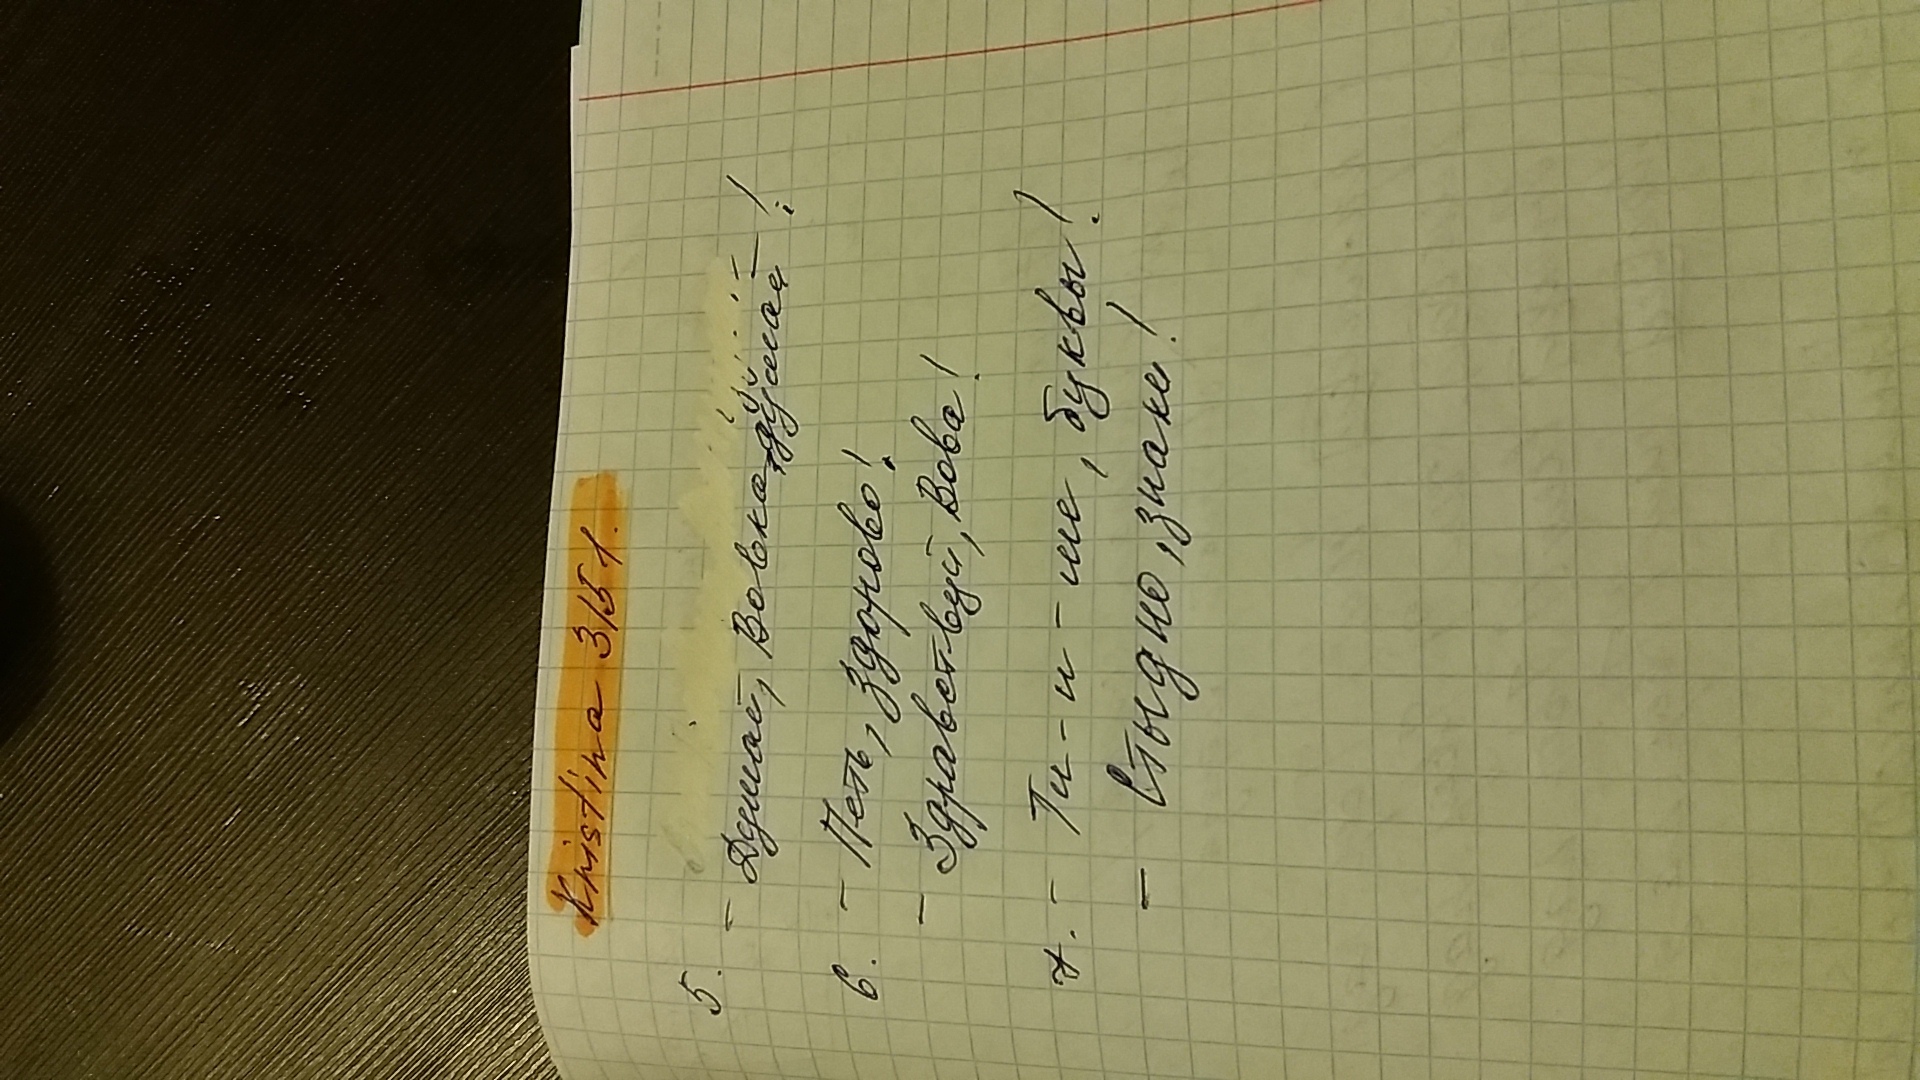 Kristina 315 1.
5. - Думай, Вовка, думай - !
6. - Петь, здорово!
- Здравствуй, Вова!
7. - Ти-и-и-ше, буквы!
- Стыдно, знаки!